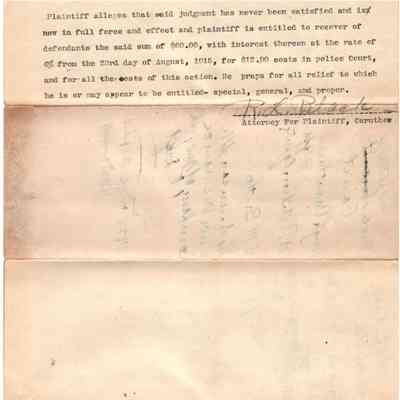 Plaintiff alleges that said judgment has never been satisfied and is
now in full force and effect and plaintiff is entitled to recover of
defendants the said sum of $60.00, with interest thereon at the rate of
6% from the 23rd day of August, 1915, for $12.00 costs in police Court,
and for all the costs of this action. He prays for all relief to which
he is or may appear to be entitled- special, general, and proper.
Attorney For Plaintiff,